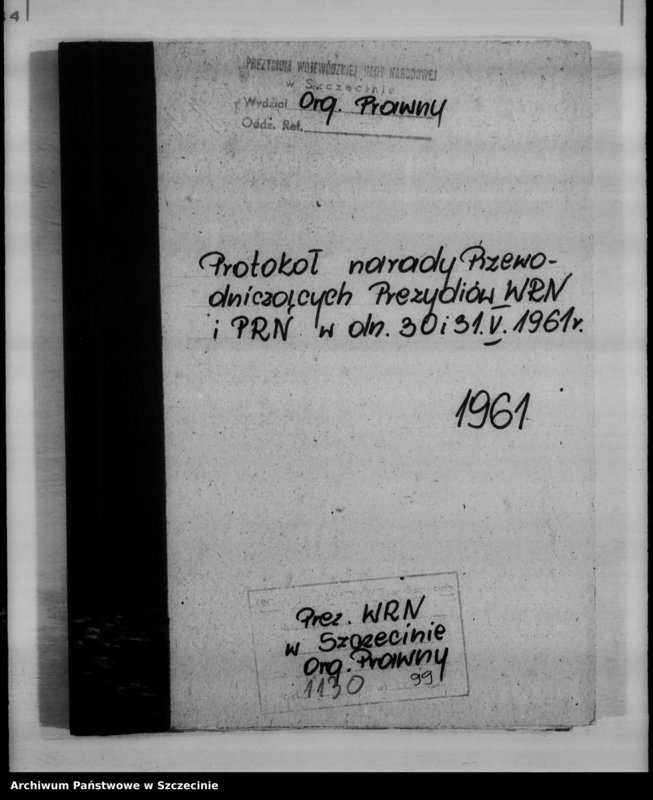 4
PREZYDIUM WOJEWÓDZKIEJ RADY NARODOWEJ
w Szczecinie
Wydział Org. Prawny
Oddz. Ref.
Protokoł narady Przewo-
dniczących Prezydiów WRN
i PRN w dn. 30 i 31.V.1961r.
1961
Prez. WRN
w Szczecinie
Org. Prawny
1130 99
Archiwum Państwowe w Szczecinie